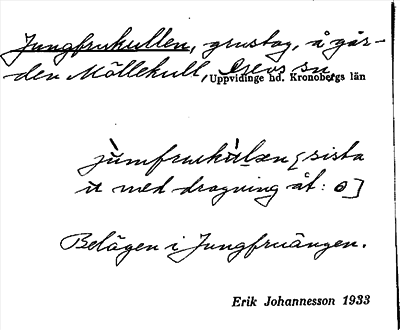 Jungfrukullen, grustag, å går-
den Möllekull, Älghults sn,
Uppvidinge hd. Kronobergs län
jùmfrukùlæn [sista
u med dragning åt: o]
Belägen i Jungfruängen.
Erik Johannesson 1933